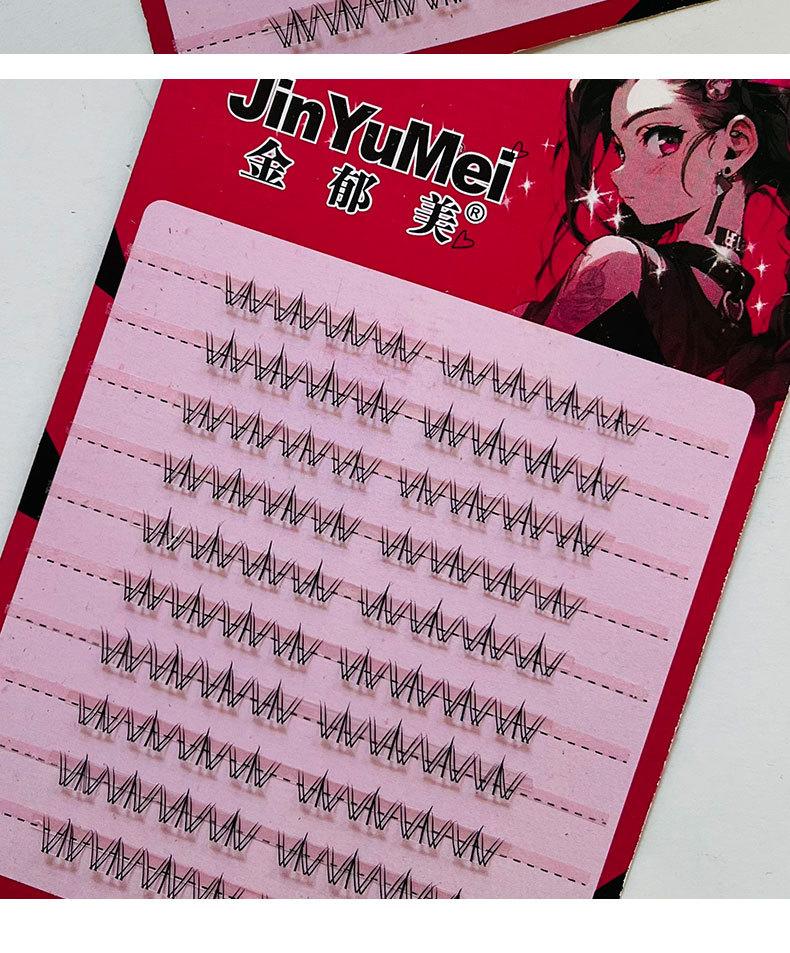 JinYuMei
金郁美®